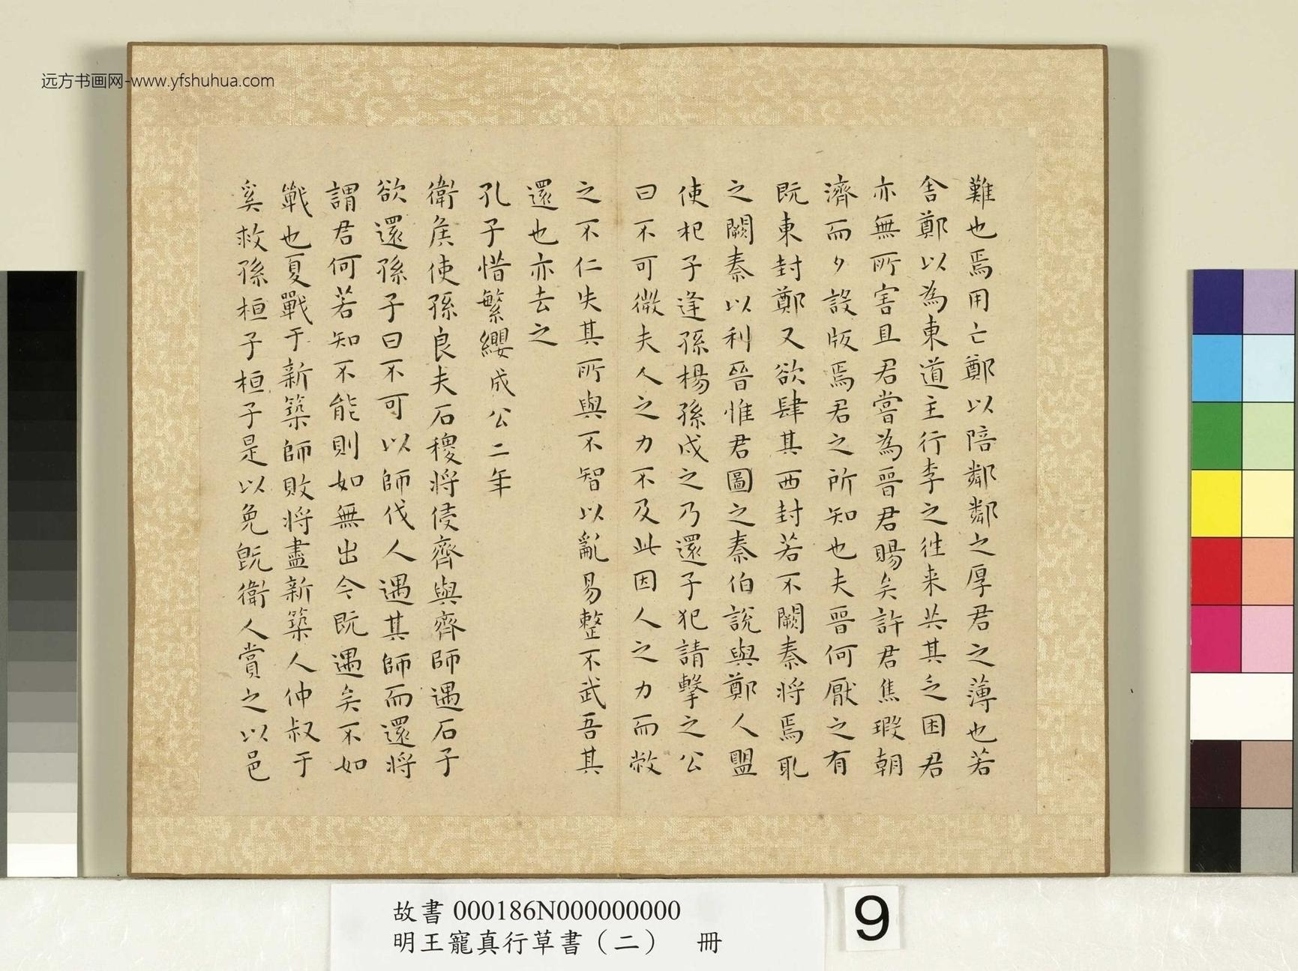 远方书画网-www.yfshuhua.com
難也焉用亡鄭以陪鄰鄰之厚君之薄也若
舍鄭以為東道主行李之往来共其乏困君
亦無所害且君嘗為晉君賜矣許君焦瑕朝
濟而夕設版焉君之所知也夫晉何厭之有
既東封鄭又欲肆其西封若不闕秦將焉取
之闕秦以利晉惟君圖之秦伯說與鄭人盟
使杞子逢孫楊孫戍之乃還子犯請擊之公
曰不可微夫人之力不及此因人之力而敝
之不仁失其所與不智以亂易整不武吾其
還也亦去之
孔子惜繁纓成公二年
衛侯使孫良夫石稷將侵齊與齊師遇石子
欲還孫子曰不可以師伐人遇其師而還將
謂君何若知不能則如無出今既遇矣不如
戰也夏戰于新築師敗將盡新築人仲叔于
奚救孫桓子桓子是以免既衛人賞之以邑
故書 000186N000000000
明王寵真行草書（二） 冊
9